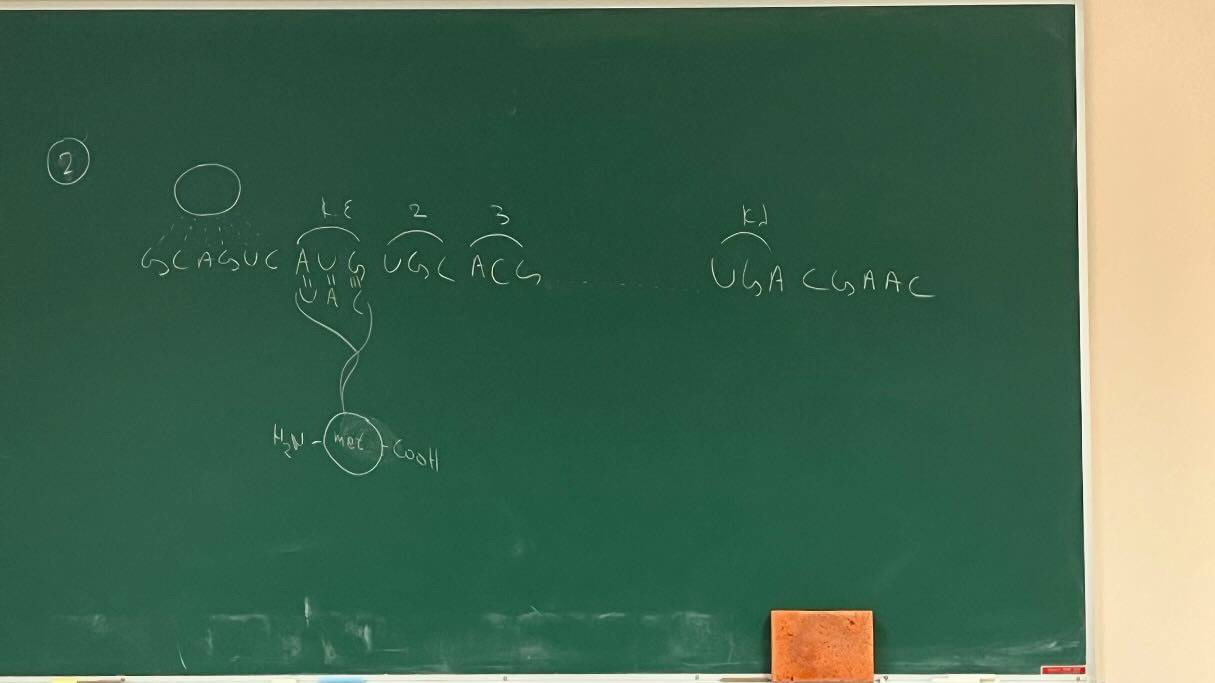 2
κ.ε 2 3 κλ
GCAGUC AUG UGC ACG ............ UGA CGAAC
UAC
H₂N - met - COOH